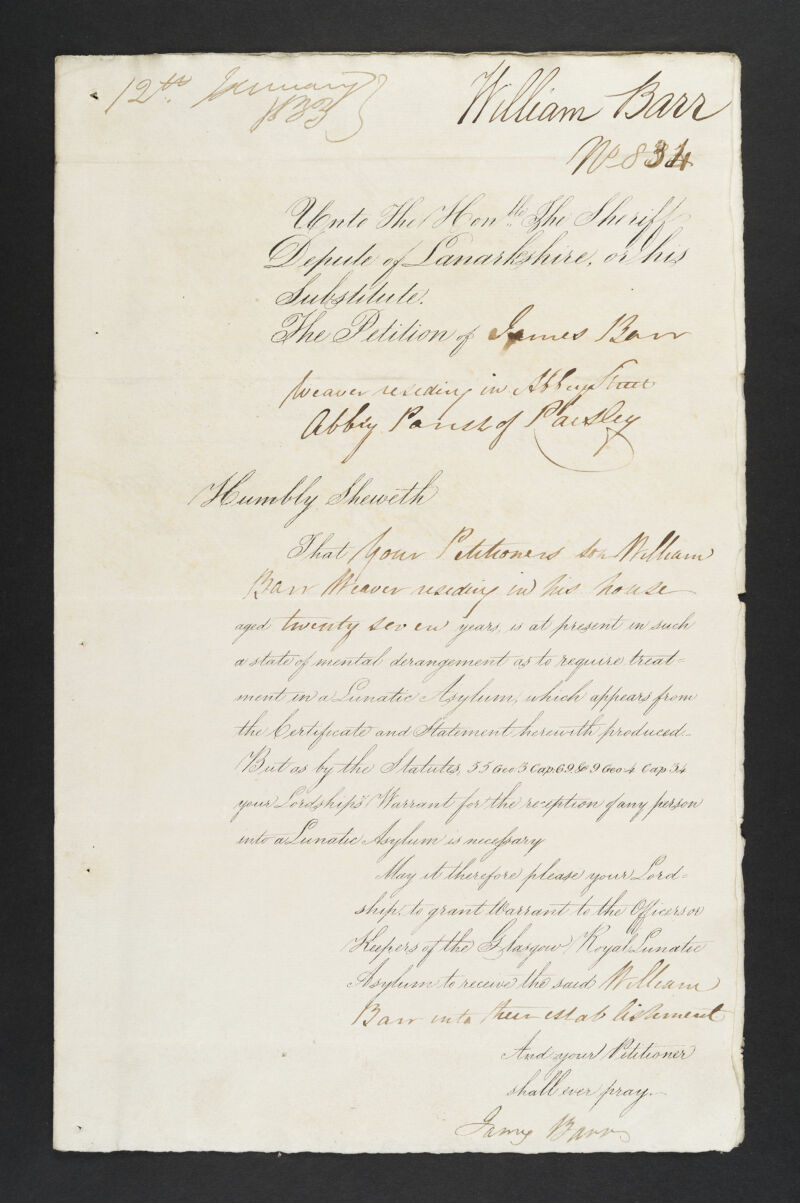 12th January
1833
William Barr
No 834
Unto The Honble The Sheriff
Depute of Lanarkshire, or his
Substitute.
The Petition of James Barr
Weaver residing in Abbey Street
Abby Parish of Paisley
Humbly Sheweth
That Your Petitioners son William
Barr Weaver residing in his house
aged twenty seven years, is at present in such
a state of mental derangement as to require treat=
ment in a Lunatic Asylum, which appears from
the Certificate and Statement herewith produced_
But as by the Statutes, 55 Geo 3 Cap 69 & 9 Geo 4 Cap 34
your Lordship's Warrant for the reception of any person
into a Lunatic Asylum is necessary
May it therefore please your Lord=
ship, to grant Warrant to the Officers or
Keepers of the Glasgow Royal Lunatic
Asylum to receive the said William
Barr into their establishment
And your Petitioner
shall ever pray._
James Barr